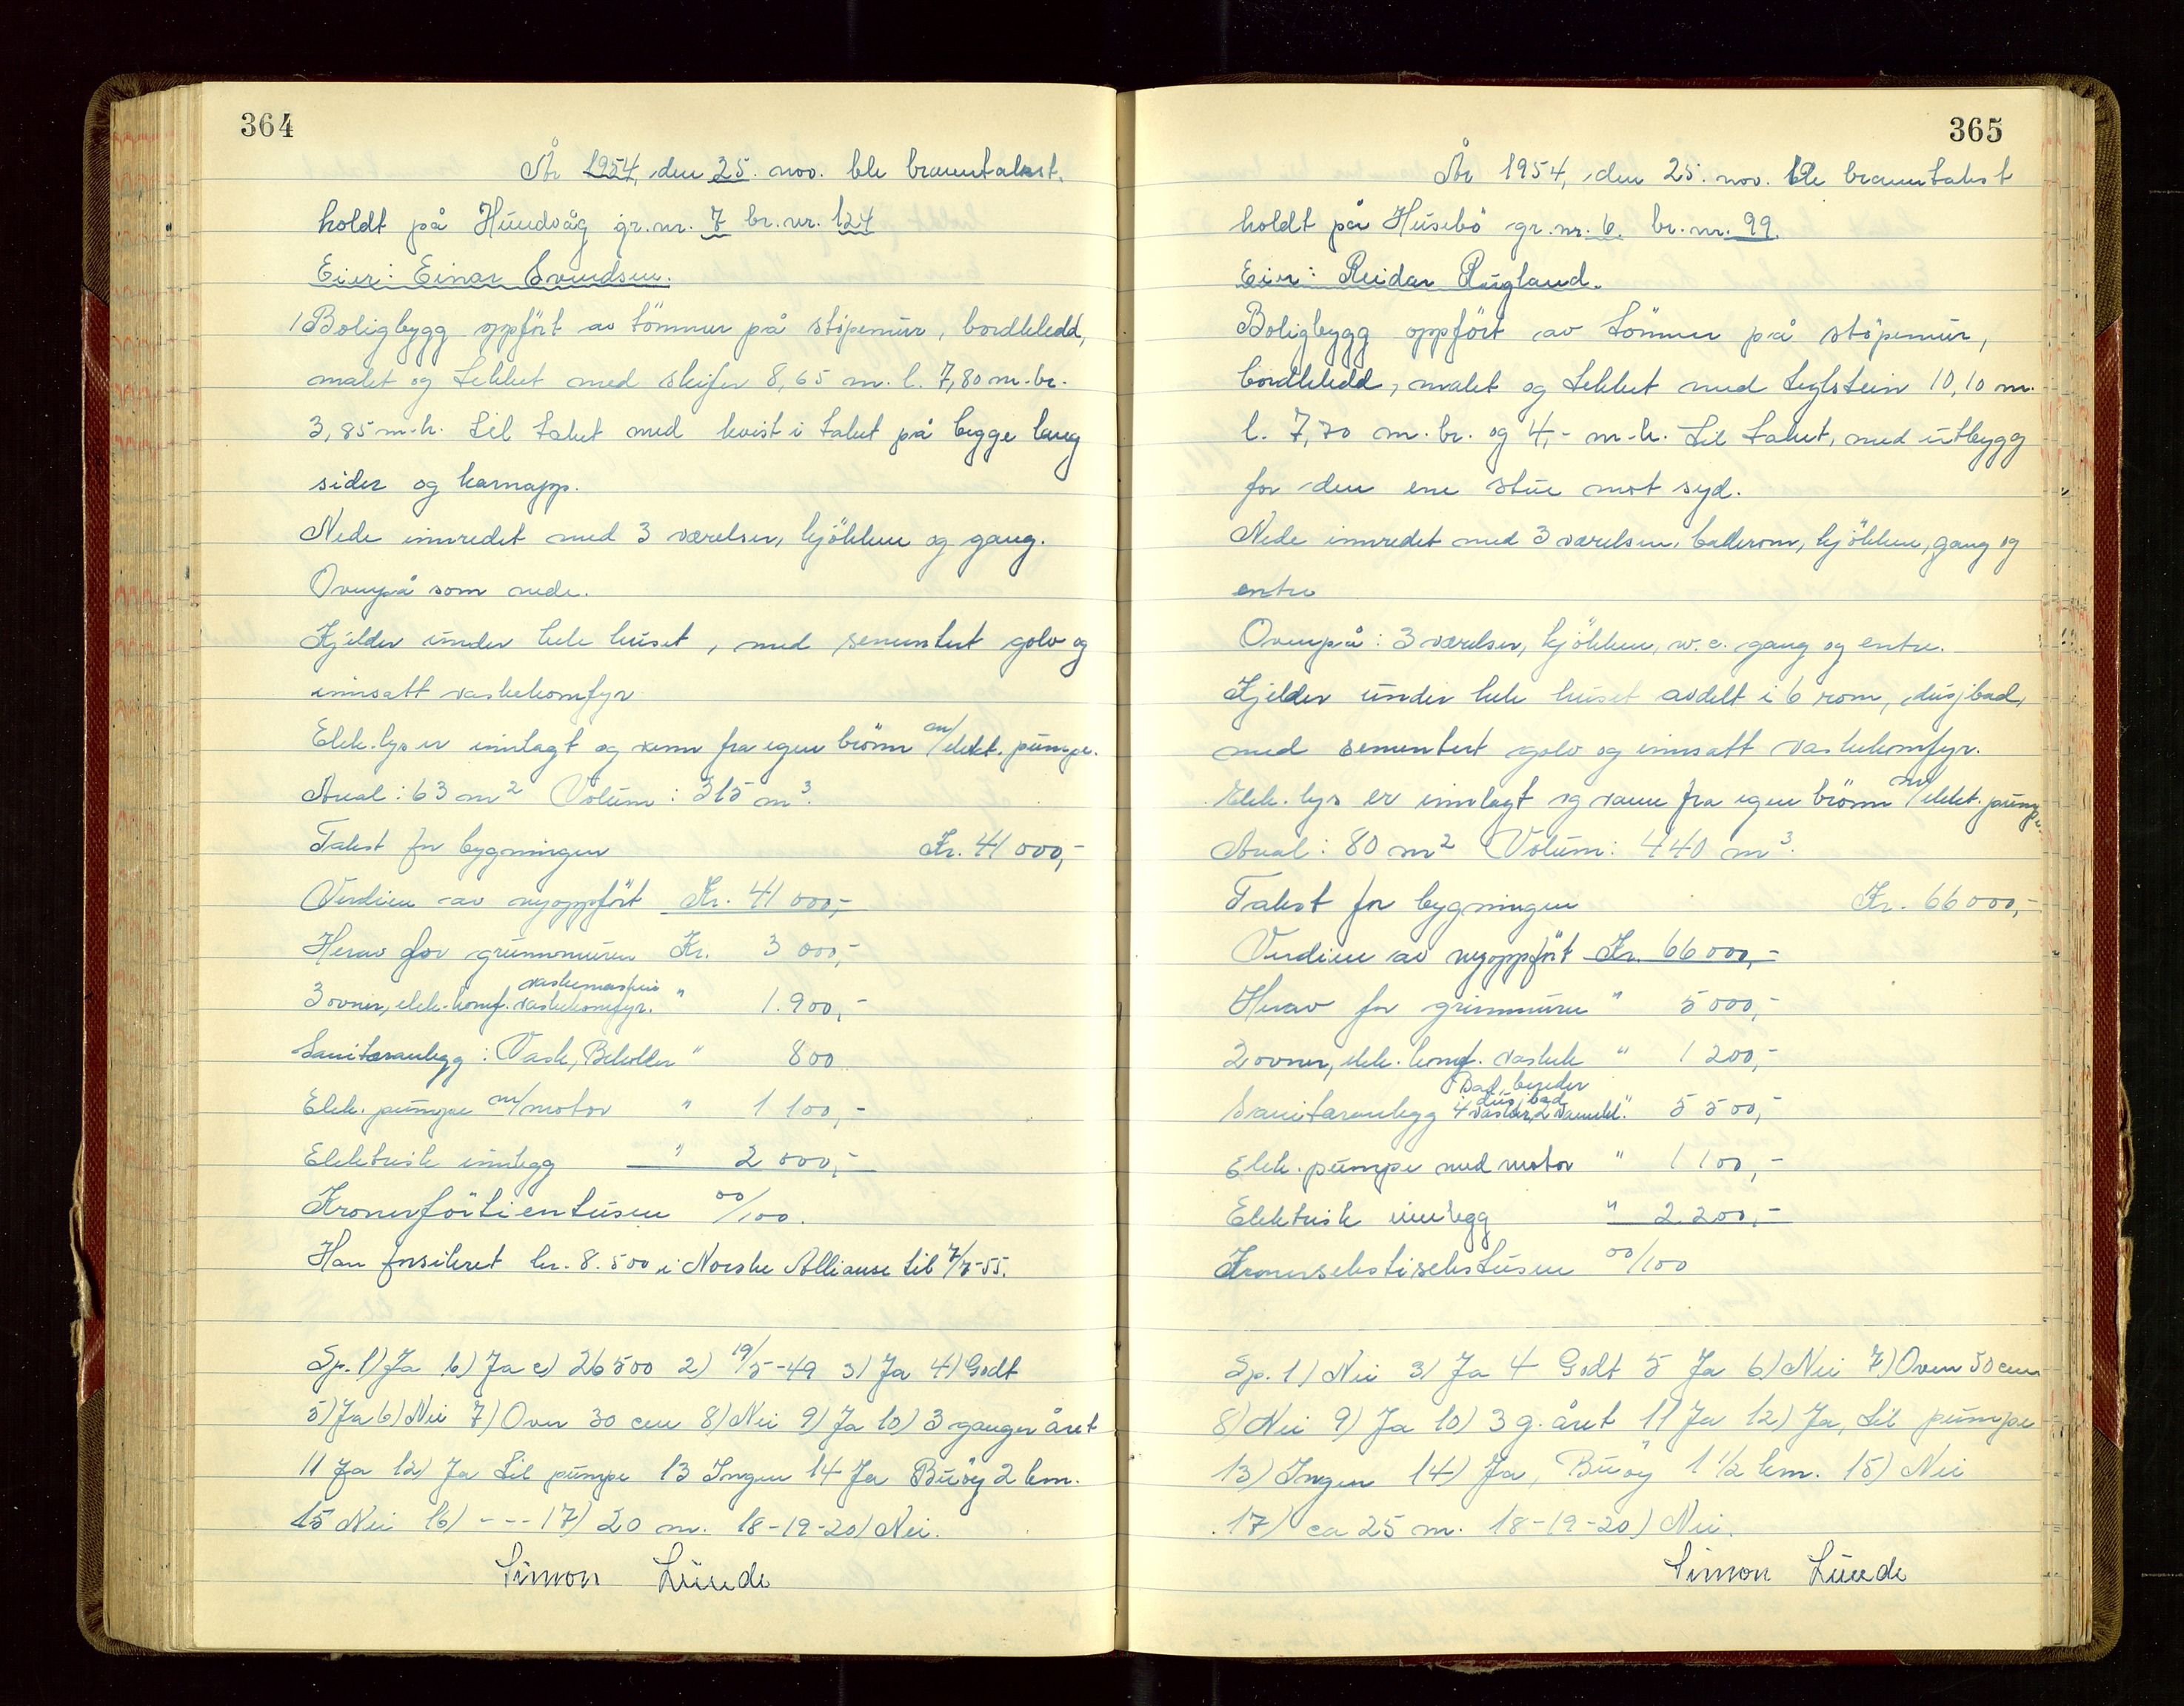 364
År 1954, den 25. nov. ble branntakst.
holdt på Hundvåg gr.nr. 7 br.nr. 124
Eier: Einar Svendsen.
1 Boligbygg oppført av tömmer på stöpemur, bordkledd,
malet og tekket med skifer 8,65 m. l. 7,80 m. br.
3,85 m.h. til taket med kvist i taket på begge lang
sider og karnapp.
Nede innredet med 3 værelser, kjökken og gang.
Ovenpå som nede.
Kjelder under hele huset, med sementert golv og
innsatt vaskekomfyr
Elek. lys er innlagt og vann fra egen brönn m/elekt. pumpe.
Areal: 63 m² Volum: 315 m³.
Takst for bygningen Kr. 41 000,-
Verdien av nyoppfört Kr. 41 000,-
Herav for grunnmuren Kr. 3 000,-
3 ovner, elek. komf. vaskekomfyr. vaskemaskin " 1.900,-
Sanitæranlegg: Vask, Beholder " 800
Elek. pumpe m/motor " 1 100,-
Elektrisk innlegg " 2 000,-
Kronerförtientusen 00/100.
Har forsikret kr. 8.500 i Norske Allianse til 7/7-55.
Sp. 1) Ja b) Ja c) 26500 2) 19/5-49 3) Ja 4) Godt
5) Ja 6) Nei 7) Over 30 cm 8) Nei 9) Ja 10) 3 ganger året
11 Ja 12) Ja til pumpe 13 Ingen 14 Ja Buöy 2 km.
15 Nei 16) --- 17) 20 m. 18-19-20) Nei.
Simon Lunde
365
År 1954, den 25. nov. ble branntakst
holdt på Husebö gr.nr. 6. br.nr. 99.
Eier: Reidar Rugland.
Boligbygg oppfört av tömmer på stöpemur,
bordkledd, malet og tekket med teglstein 10,10 m.
l. 7,70 m. br. og 4,- m.h. til taket, med utbygg
for den ene stue mot syd.
Nede innredet med 3 værelser, baderom, kjökken, gang og
entre
Ovenpå: 3 værelser, kjökken, w.c. gang og entre.
Kjelder under hele huset avdelt i 6 rom, dusjbad,
med sementert golv og innsatt vaskekomfyr.
Elek. lys er innlagt og vann fra egen brönn m/elekt. pumpe.
Areal: 80 m² Volum: 440 m³.
Takst for bygningen Kr. 66 000,-
Verdien av nyoppfört Kr. 66 000,-
Herav for grunnmuren " 5 000,-
2 ovner, elek. komf. vaskek " 1 200,-
Bad, bereder
dusjbad
Sanitæranlegg 4 vasker, 2 vannkl. " 5 500,-
Elek. pumpe med motor " 1 100,-
Elektrisk innlegg " 2.200,-
Kronersekstisekstusen 00/100
Sp. 1) Nei 3) Ja 4 Godt 5 Ja 6) Nei 7) Over 50 cm
8) Nei 9) Ja 10) 3 g. året 11 Ja 12) Ja, til pumpe
13) Ingen 14) Ja, Buöy 1 1/2 km. 15) Nei
17) ca 25 m. 18-19-20) Nei.
Simon Lunde